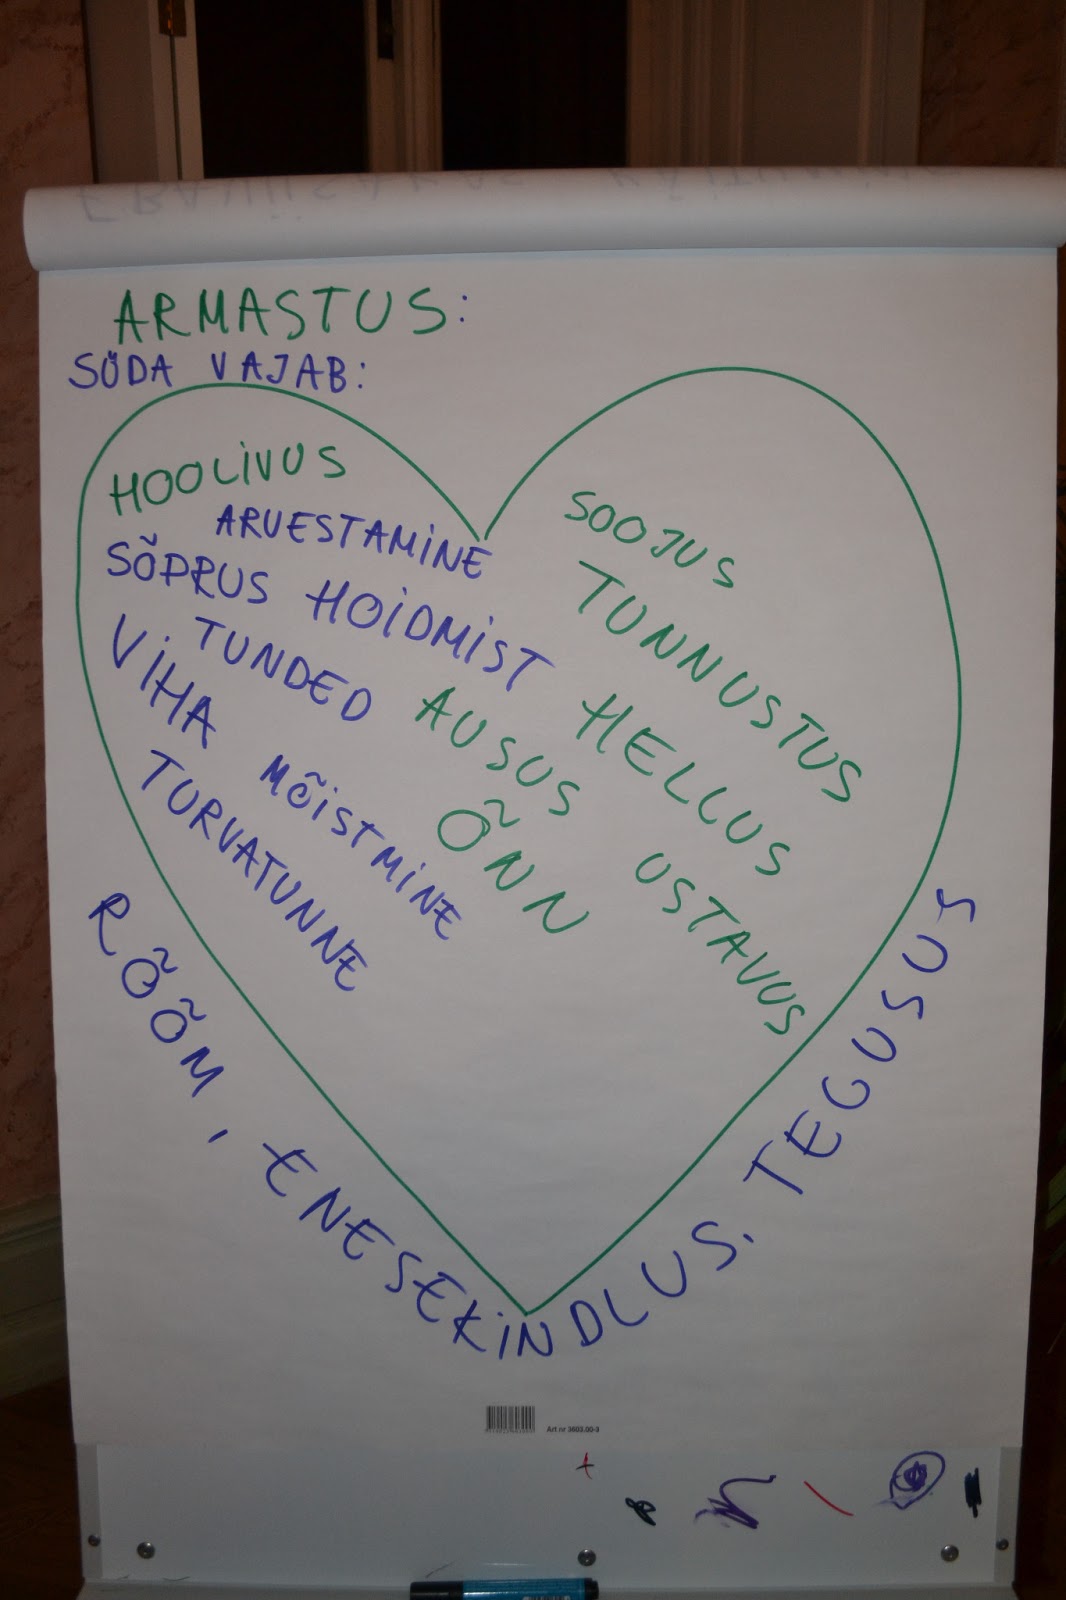 ARMASTUS:
SÜDA VAJAB:
HOOLIVUS
ARVESTAMINE
SOOJUS
SÕPRUS HOIDMIST
TUNNUSTUS
TUNDED AUSUS HELLUS
VIHA MÕISTMINE ÕNN USTAVUS
TURVATUNNE
RÕÕM, ENESEKINDLUS. TEGUSUS
Art nr 3603.00-3